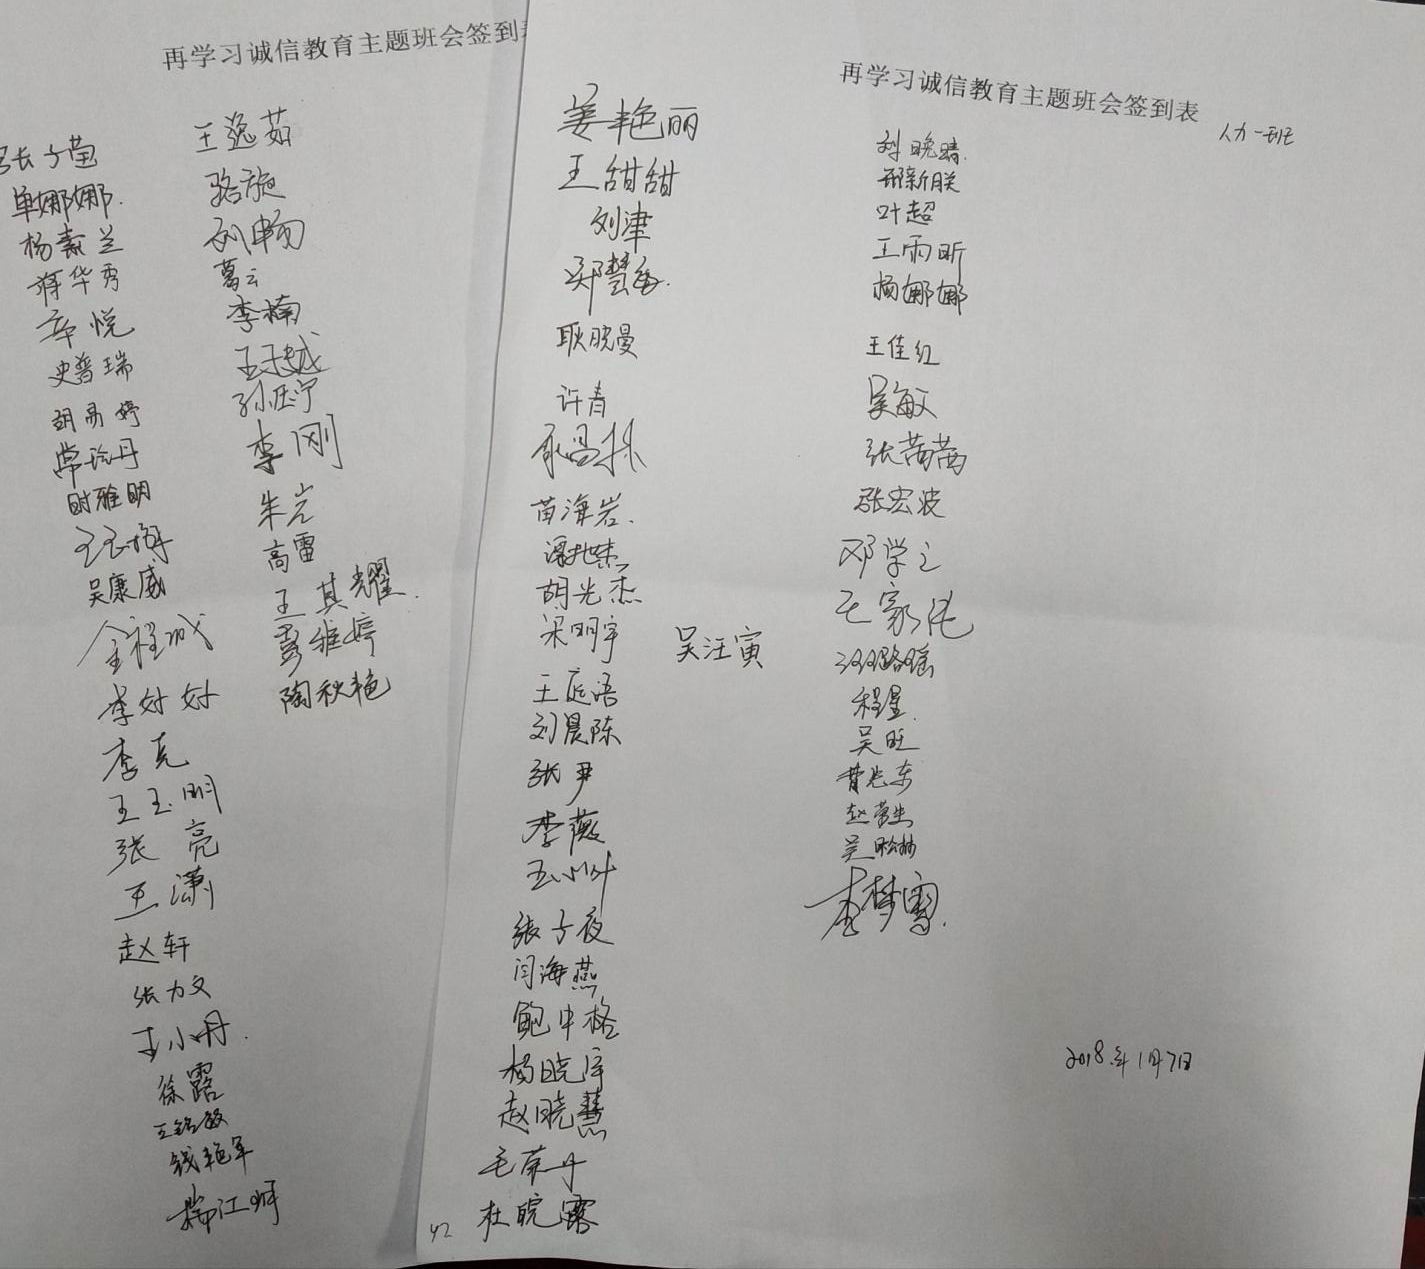 再学习诚信教育主题班会签到
张子莹
单娜娜.
杨素兰
蒋华秀
辛悦
史普瑞
胡易婷
常玲丹
时雅明
吴康威
金程成
李好好
李克
王玉明
张亮
王潇
赵轩
张力文
王小丹.
徐露
王铭敏
钱艳军
王逸茹
骆旋
刘畅
葛云
李楠
王子越
孙珏宁
李刚
朱岩
高雷
王其耀.
彭雅婷
陶秋艳
再学习诚信教育主题班会签到表
人力一班
姜艳丽
王甜甜
刘津
郑慧敏.
耿晓曼
许青
苗海岩.
胡光杰
梁明宇
吴汪寅
王庭语
刘晨陈
张尹
李薇
王小叶
张子夜
闫海燕
鲍中格
杨晓宇
赵晓慧
毛荣丹
杜皖露
42
刘晚晴.
邢新朕
叶超
王雨昕
杨娜娜
王佳红
吴敏
张茜茜
张宏波
邓学之
汲路瑶
程星.
吴旺
费光东
赵营生
吴松林
李梦雪.
2018年1月7日